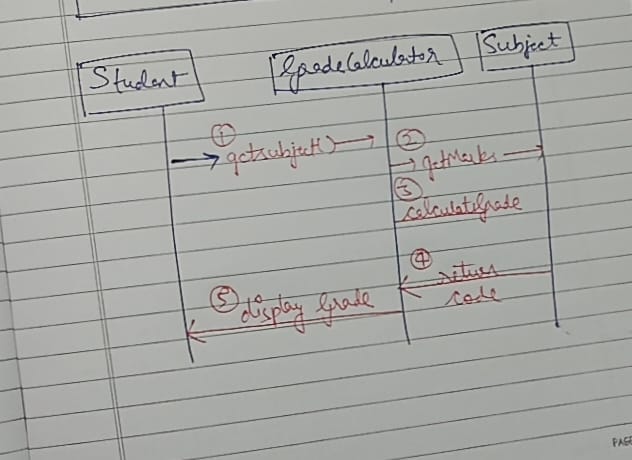 Student
GradeCalculator
Subject
①
getsubject()
②
getMarks
③
CalculateGrade
④
return
code
⑤
display Grade
PAGE